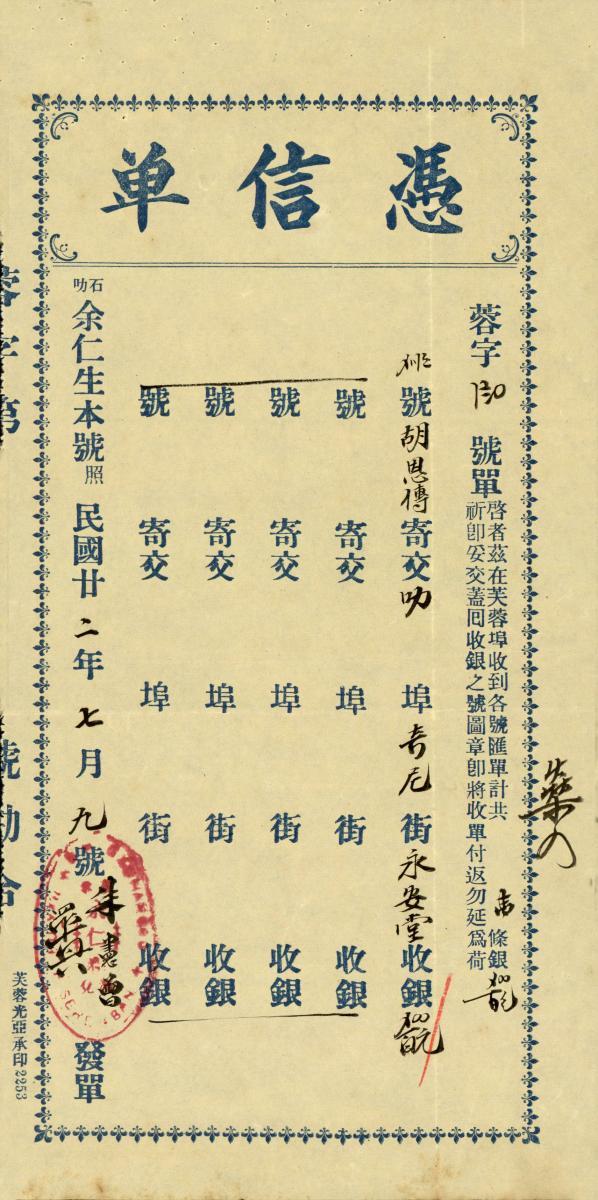 憑信单
蓉字 號單
啓者茲在芙蓉埠收到各號匯單計共 條銀
祈即妥交蓋囘收銀之號圖章即將收單付返勿延為荷
號胡恩傳寄交叻埠奇尼街永安堂收銀
號寄交埠街收銀
號寄交埠街收銀
號寄交埠街收銀
號寄交埠街收銀
石叻余仁生本號照 民國廿二年七月九號 發單
蓉字第 號
芙蓉光亞承印 2253